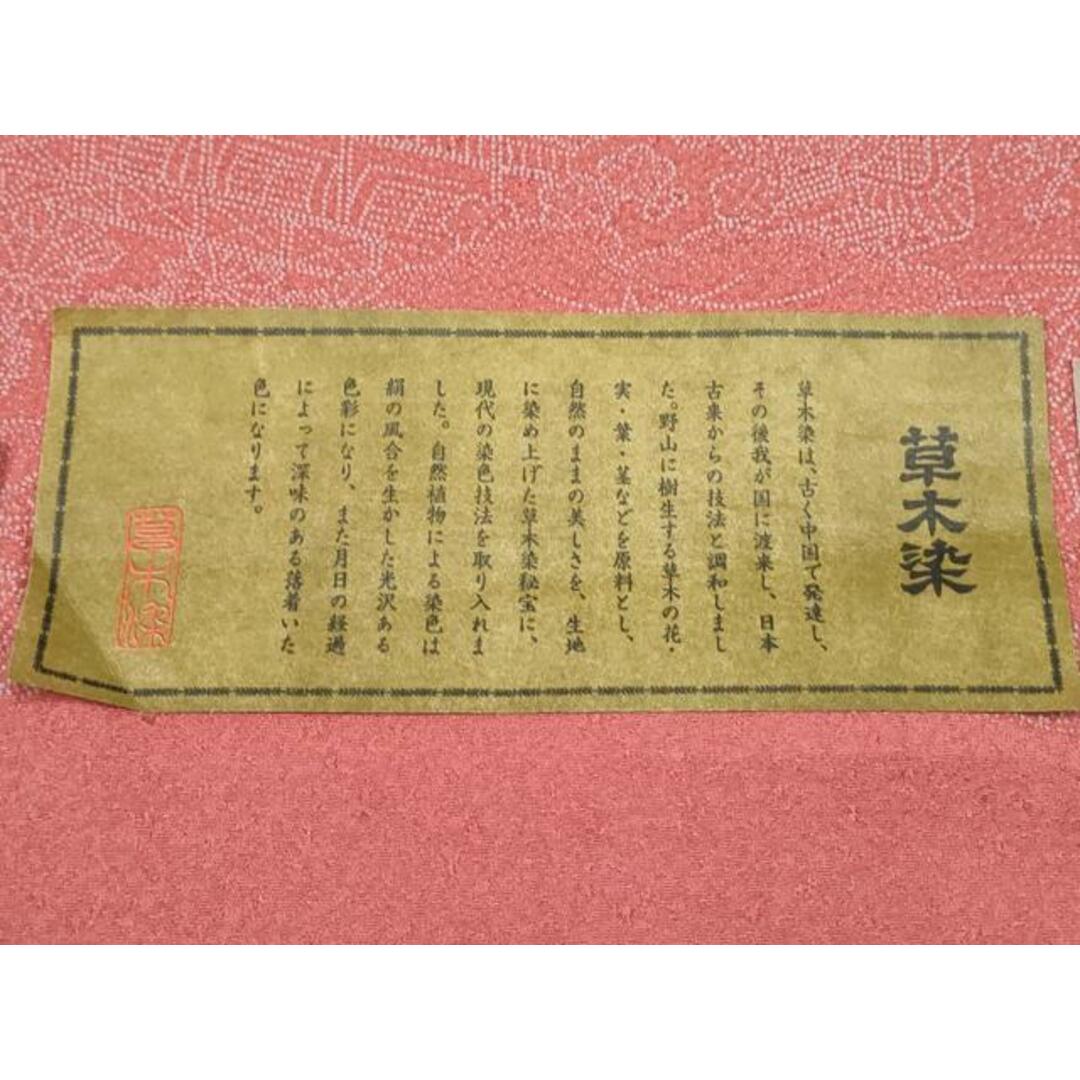 草木染
草木染は、古く中国で発達し、
その後我が国に渡来し、日本
古来からの技法と調和しまし
た。野山に樹生する草木の花・
実・葉・茎などを原料とし、
自然のままの美しさを、生地
に染め上げた草木染秘宝に、
現代の染色技法を取り入れま
した。自然植物による染色は
絹の風合を生かした光沢ある
色彩になり、また月日の経過
によって深味のある落着いた
色になります。
草木染